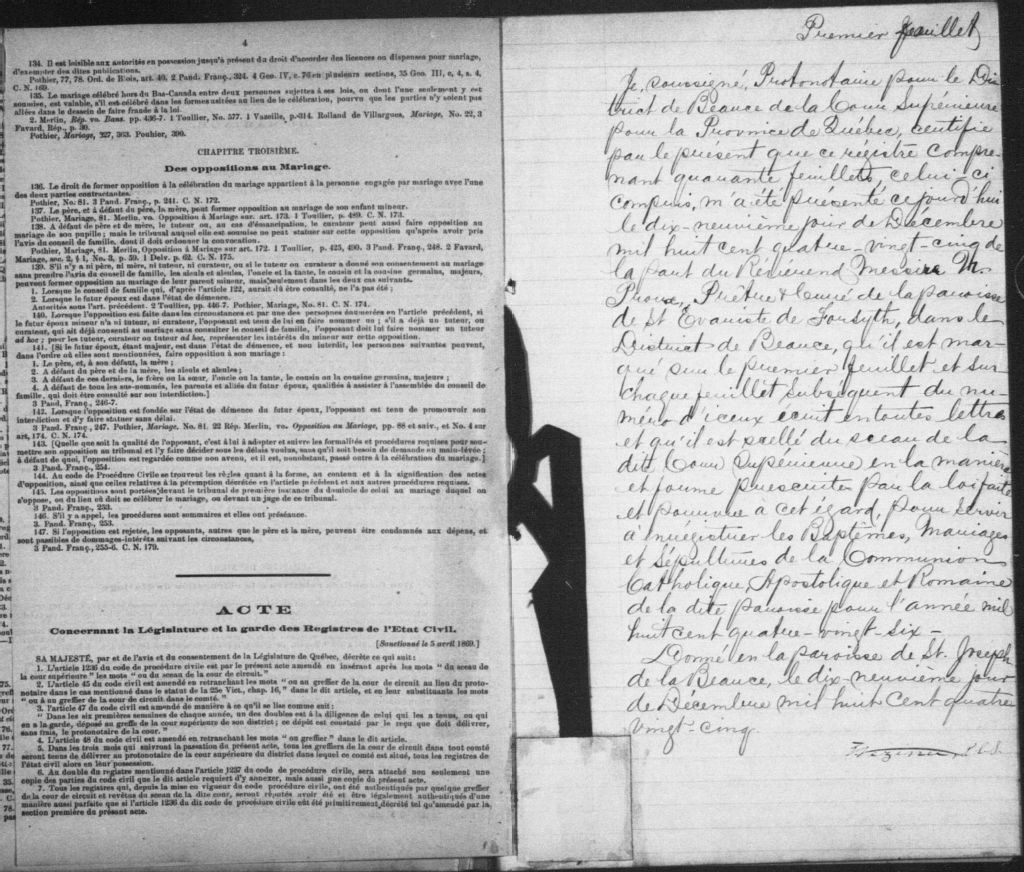 4
134. Il est loisible aux autorités en possession jusqu'à présent du droit d'accorder des licences ou dispenses pour mariage,
d'exempter des dites publications.
Pothier, 77, 78. Ord. de Blois, art. 40, 2 Pand. Franç., 324. 4 Geo. IV, c. 76 en plusieurs sections, 35 Geo. III, c. 4, s. 4,
C. N. 169.
135. Le mariage célébré hors du Bas-Canada entre deux personnes sujettes à ses lois, ou dont l'une seulement y est
soumise, est valable, s'il est célébré dans les formes usitées au lieu de la célébration, pourvu que les parties n'y soient pas
allées dans le dessein de faire fraude à la loi.
2. Merlin, Rép. vo. Bans. pp. 436-7. 1 Toullier, No. 577. 1 Vazeille, p. 314. Rolland de Villargues, Mariage, No. 22, 3
Favard, Rép., p. 30.
Pothier, Mariage, 327, 363. Pouhier, 390.
CHAPITRE TROISIÈME.
Des oppositions au Mariage.
136. Le droit de former opposition à la célébration du mariage appartient à la personne engagée par mariage avec l'une
des deux parties contractantes.
Pothier, No. 81. 3 Pand. Franç., p. 241. C. N. 172.
137. Le père, et à défaut du père, la mère, peut former opposition au mariage de son enfant mineur.
Pothier, Mariage, 81. Merlin, vo. Opposition à Mariage sur. art. 173. 1 Toullier, p. 489. C. N. 173.
138. A défaut de père et de mère, le tuteur ou, au cas d'émancipation, le curateur peut aussi faire opposition au
mariage de son pupille; mais le tribunal auquel elle est soumise ne peut statuer sur cette opposition qu'après avoir pris
l'avis du conseil de famille, dont il doit ordonner la convocation.
Pothier, Mariage, 81. Merlin, Opposition à Mariage sur art. 172. 1 Toullier, p. 425, 490. 3 Pand. Franç., 248. 2 Favard,
Mariage, sec. 2, § 1, No. 3, p. 59. 1 Delv. p. 62. C. N. 175.
139. S'il n'y a ni père, ni mère, ni tuteur, ni curateur, ou si le tuteur ou curateur a donné son consentement au mariage
sans prendre l'avis du conseil de famille, les aïeuls et aïeules, l'oncle et la tante, le cousin et la cousine germains, majeurs,
peuvent former opposition au mariage de leur parent mineur, mais seulement dans les deux cas suivants.
1. Lorsque le conseil de famille qui, d'après l'article 122, aurait dû être consulté, ne l'a pas été;
2. Lorsque le futur époux est dans l'état de démence.
Autorités sous l'art. précédent. 2 Toullier, pp. 446-7. Pothier, Mariage, No. 81. C. N. 174.
140. Lorsque l'opposition est faite dans les circonstances et par une des personnes énumérées en l'article précédent, si
le futur époux mineur n'a ni tuteur, ni curateur, l'opposant est tenu de lui en faire nommer un; s'il a déjà un tuteur, ou
curateur, qui ait déjà consenti au mariage sans consulter le conseil de famille, l'opposant doit lui faire nommer un tuteur
ad hoc; pour les tuteur, curateur ou tuteur ad hoc, représenter les intérêts du mineur sur cette opposition.
141. [Si le futur époux, étant majeur, est dans l'état de démence, et non interdit, les personnes suivantes peuvent,
dans l'ordre où elles sont mentionnées, faire opposition à son mariage:
1. Le père, et, à son défaut, la mère;
2. A défaut de père et de la mère, les aïeuls et aïeules;
3. A défaut de ces derniers, le frère ou la sœur, l'oncle ou la tante, le cousin ou la cousine germains, majeurs;
4. A défaut de tous les sus-nommés, les parents et alliés du futur époux, qualifiés à assister à l'assemblée du conseil de
famille, qui doit être consulté sur son interdiction.]
3 Pand. Franç., 246-7.
142. Lorsque l'opposition est fondée sur l'état de démence du futur époux, l'opposant est tenu de promouvoir son
interdiction et d'y faire statuer sans délai.
3 Pand. Franç., 247. Pothier, Mariage, No. 81. 22 Rép. Merlin, vo. Opposition au Mariage, pp. 88 et suiv., et No. 4 sur
art. 174. C. N. 174.
143. [Quelle que soit la qualité de l'opposant, c'est à lui à adopter et suivre les formalités et procédures requises pour sou-
mettre son opposition au tribunal et l'y faire décider sous les délais voulus, sans qu'il soit besoin de demande en main-levée;
à défaut de quoi, l'opposition est regardée comme non avenu, et il est, nonobstant, passé outre à la célébration du mariage.]
3 Pand. Franç., 254.
144. Au code de Procédure Civile se trouvent les règles quant à la forme, au contenu et à la signification des actes
d'opposition, ainsi que celles relatives à la péremption décrétée en l'article précédent et aux autres procédures requises.
145. Les oppositions sont portées devant le tribunal de première instance du domicile de celui au mariage duquel on
s'oppose, ou du lieu où doit se célébrer le mariage, ou devant un juge de ce tribunal.
3 Pand. Franç., 253.
146. S'il y a appel, les procédures sont sommaires et elles ont préséance.
3. Pand. Franç., 253.
147. Si l'opposition est rejetée, les opposants, autres que le père et la mère, peuvent être condamnés aux dépens, et
sont passibles de dommages-intérêts suivant les circonstances,
3 Pand. Franç., 255-6. C. N. 179.
ACTE
Concernant la Législature et la garde des Registres de l'Etat Civil.
[Sanctionné le 5 avril 1869.]
SA MAJESTÉ, par et de l'avis et du consentement de la Législature de Québec, décrète ce qui suit:
1. L'article 1236 du code de procédure civile est par le présent acte amendé en insérant après les mots " du sceau de
la cour supérieure " les mots " ou du sceau de la cour de circuit."
2. L'article 45 du code civil est amendé en retranchant les mots " ou au greffier de la cour de circuit au lieu du proto-
notaire dans le cas mentionné dans le statut de la 25e Vict., chap. 16, " dans le dit article, et en leur substituants les mots
" ou à un greffier de la cour de circuit dans le comté "
3. l'article 47 du code civil est amendé de manière à ce qu'il se lise comme suit:
" Dans les six premières semaines de chaque année, un des doubles est à la diligence de celui qui les a tenus, ou qui
en a la garde, déposé au greffe de la cour supérieure de son district; ce dépôt est constaté par le reçu que doit délivrer,
sans frais, le protonotaire de la cour."
4. L'article 48 du code civil est amendé en retranchant les mots " on greffier " dans le dit article.
5. Dans les trois mois qui suivront la passation du présent acte, tous les greffiers de la cour de circuit dans tout comté
seront tenus de délivrer au protonotaire de la cour supérieure du district dans lequel ce comté est situé, tous les registres de
l'état civil alors en leur possession.
6. Au double du registre mentionné dans l'article 1237 du code de procédure civile, sera attaché non seulement une
copie des parties du code civil que le dit article requiert d'y annexer, mais aussi une copie du présent acte.
7. Tous les registres qui, depuis la mise en vigueur du code procédure civile, ont été authentiqués par quelque greffier
de la cour de circuit et revêtus du sceau de la dite cour, seront réputés avoir été et être légalement authentiqués d'une
manière aussi parfaite que si l'article 1236 du dit code de procédure civile eût été primitivement décrété tel qu'amendé par la
section première du présent acte.
Premier feuillet
Je, soussigné, Protonotaire pour le Dis
trict de Beauce de la Cour Supérieure
pour la Province de Québec, certifie
par le présent que ce régistre compre-
nant quarante feuillets, celui-ci
compris, m'a été présenté ce jourd'hui
le dix-neuvième jour de Décembre
mil huit cent quatre-vingt-cinq de
la part du Révérend Messire M.
Proux, Prêtre & Curé de la paroisse
de St Evariste de Forsyth, dans le
District de Beauce, qu'il est mar-
qué sur le premier feuillet et sur
chaque feuillet subséquent du nu-
méro d'iceux écrit en toutes lettres
et qu'il est scellé du sceau de la
dite Cour Supérieure en la manière
et forme prescrites par la loi faite
et pourvue à cet égard, pour servir
à enrégistrer les Baptêmes, Mariages
et Sépultures de la Communion
Catholique, Apostolique et Romaine
de la dite paroisse pour l'année mil
huit cent quatre-vingt-six-
Donné en la paroisse de St. Joseph
de la Beauce, le dix-neuvième jour
de Décembre mil huit cent quatre
vingt-cinq
Vézina P.C.S.